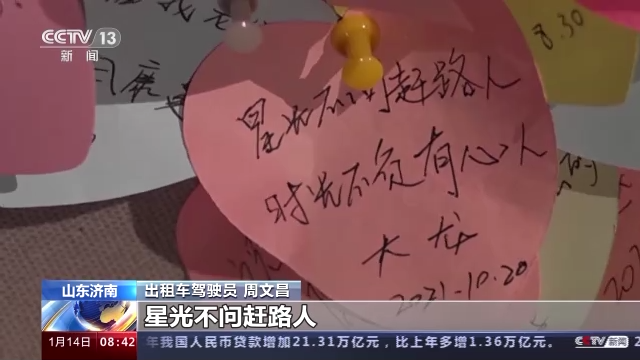 CCTV 13
新闻
8.30
星光不问赶路人
时光不负有心人
大龙
2021.10.20
山东济南
出租车驾驶员 周文昌
星光不问赶路人
1月14日 08:42
年我国人民币贷款增加21.31万亿元，比上年多增1.36万亿元。
CCTV 新闻